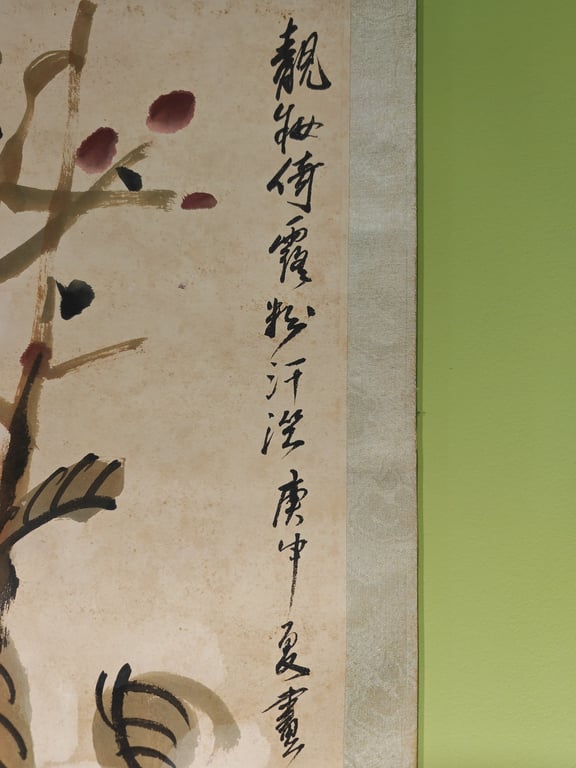 靚妝倚露粉汗溼庚申夏畫